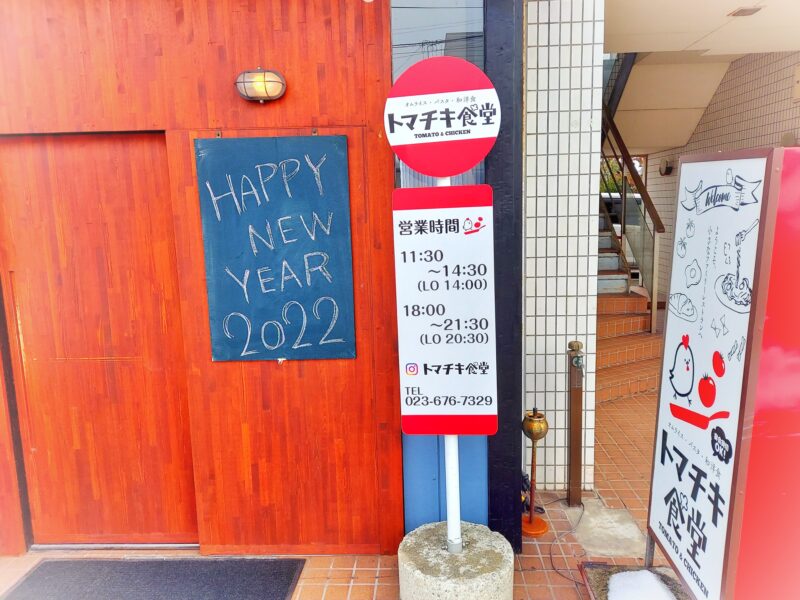 HAPPY
NEW
YEAR
2022
オムライス・パスタ・和洋食
トマチキ食堂
TOMATO & CHICKEN
営業時間
11:30
〜14:30
(LO 14:00)
18:00
〜21:30
(LO 20:30)
トマチキ食堂
TEL
023-676-7329
Welcome
オムライス・パスタ・和洋食
トマチキ
食堂
TOMATO & CHICKEN